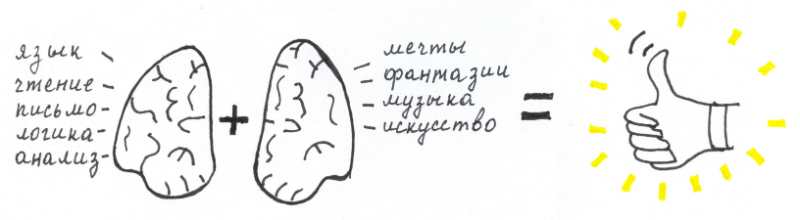 язык
чтение
письмо
логика
анализ
+
мечты
фантазии
музыка
искусство
=